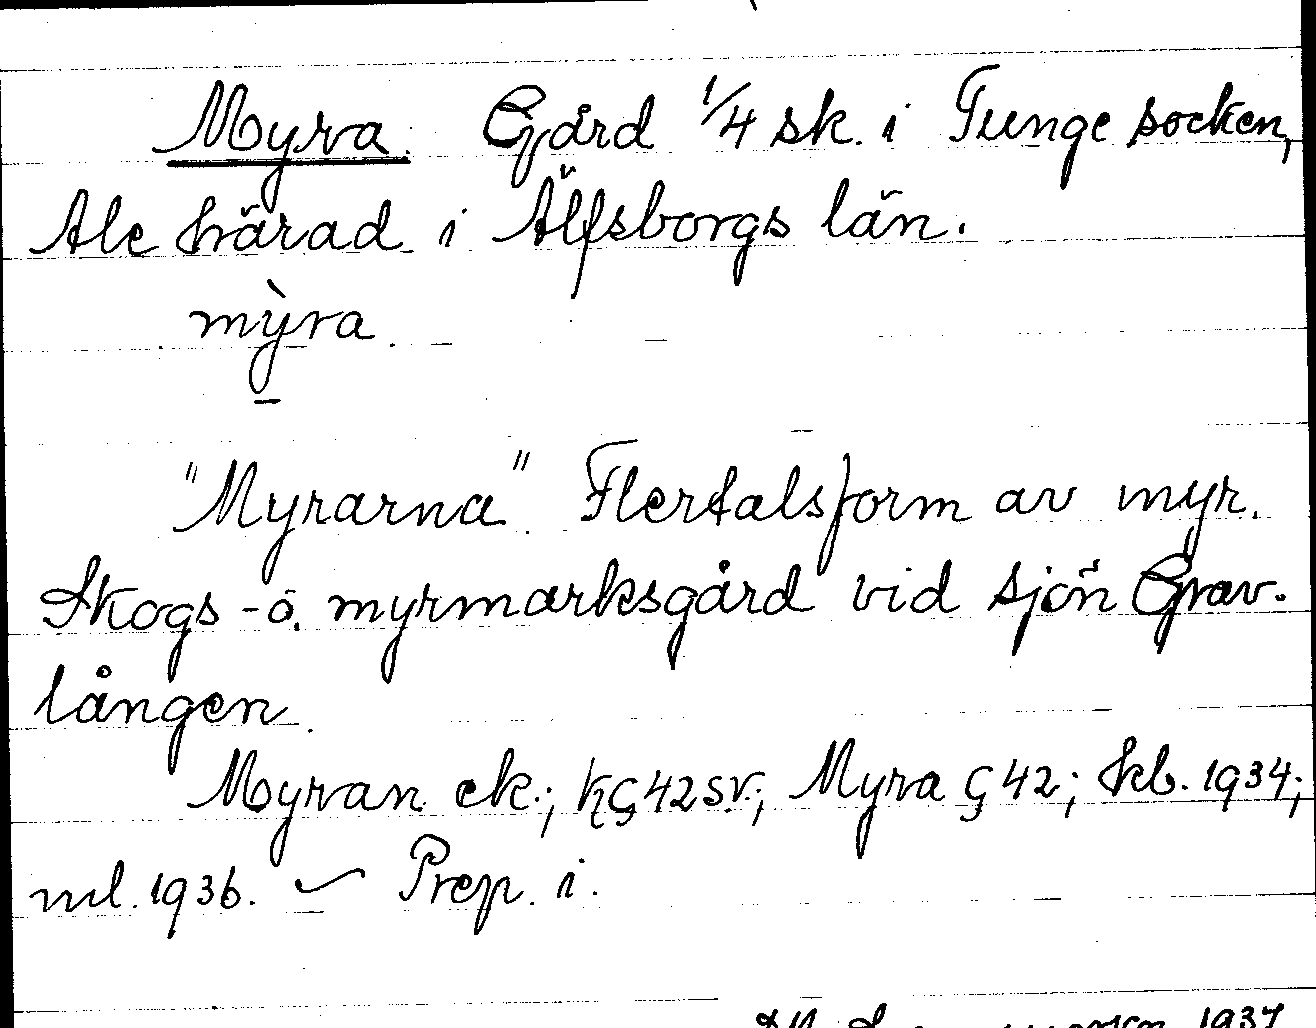 Myra. Gård 1/4 sk. i Tunge socken,
Ale härad i Älfsborgs län.
mỳra
"Myrarna". Flertalsform av myr.
Skogs- o. myrmarksgård vid sjön Grav-
lången.
Myran ek.; KG42SV; Myra G42; kb. 1934;
ml. 1936. ~ Prep. i.
1937